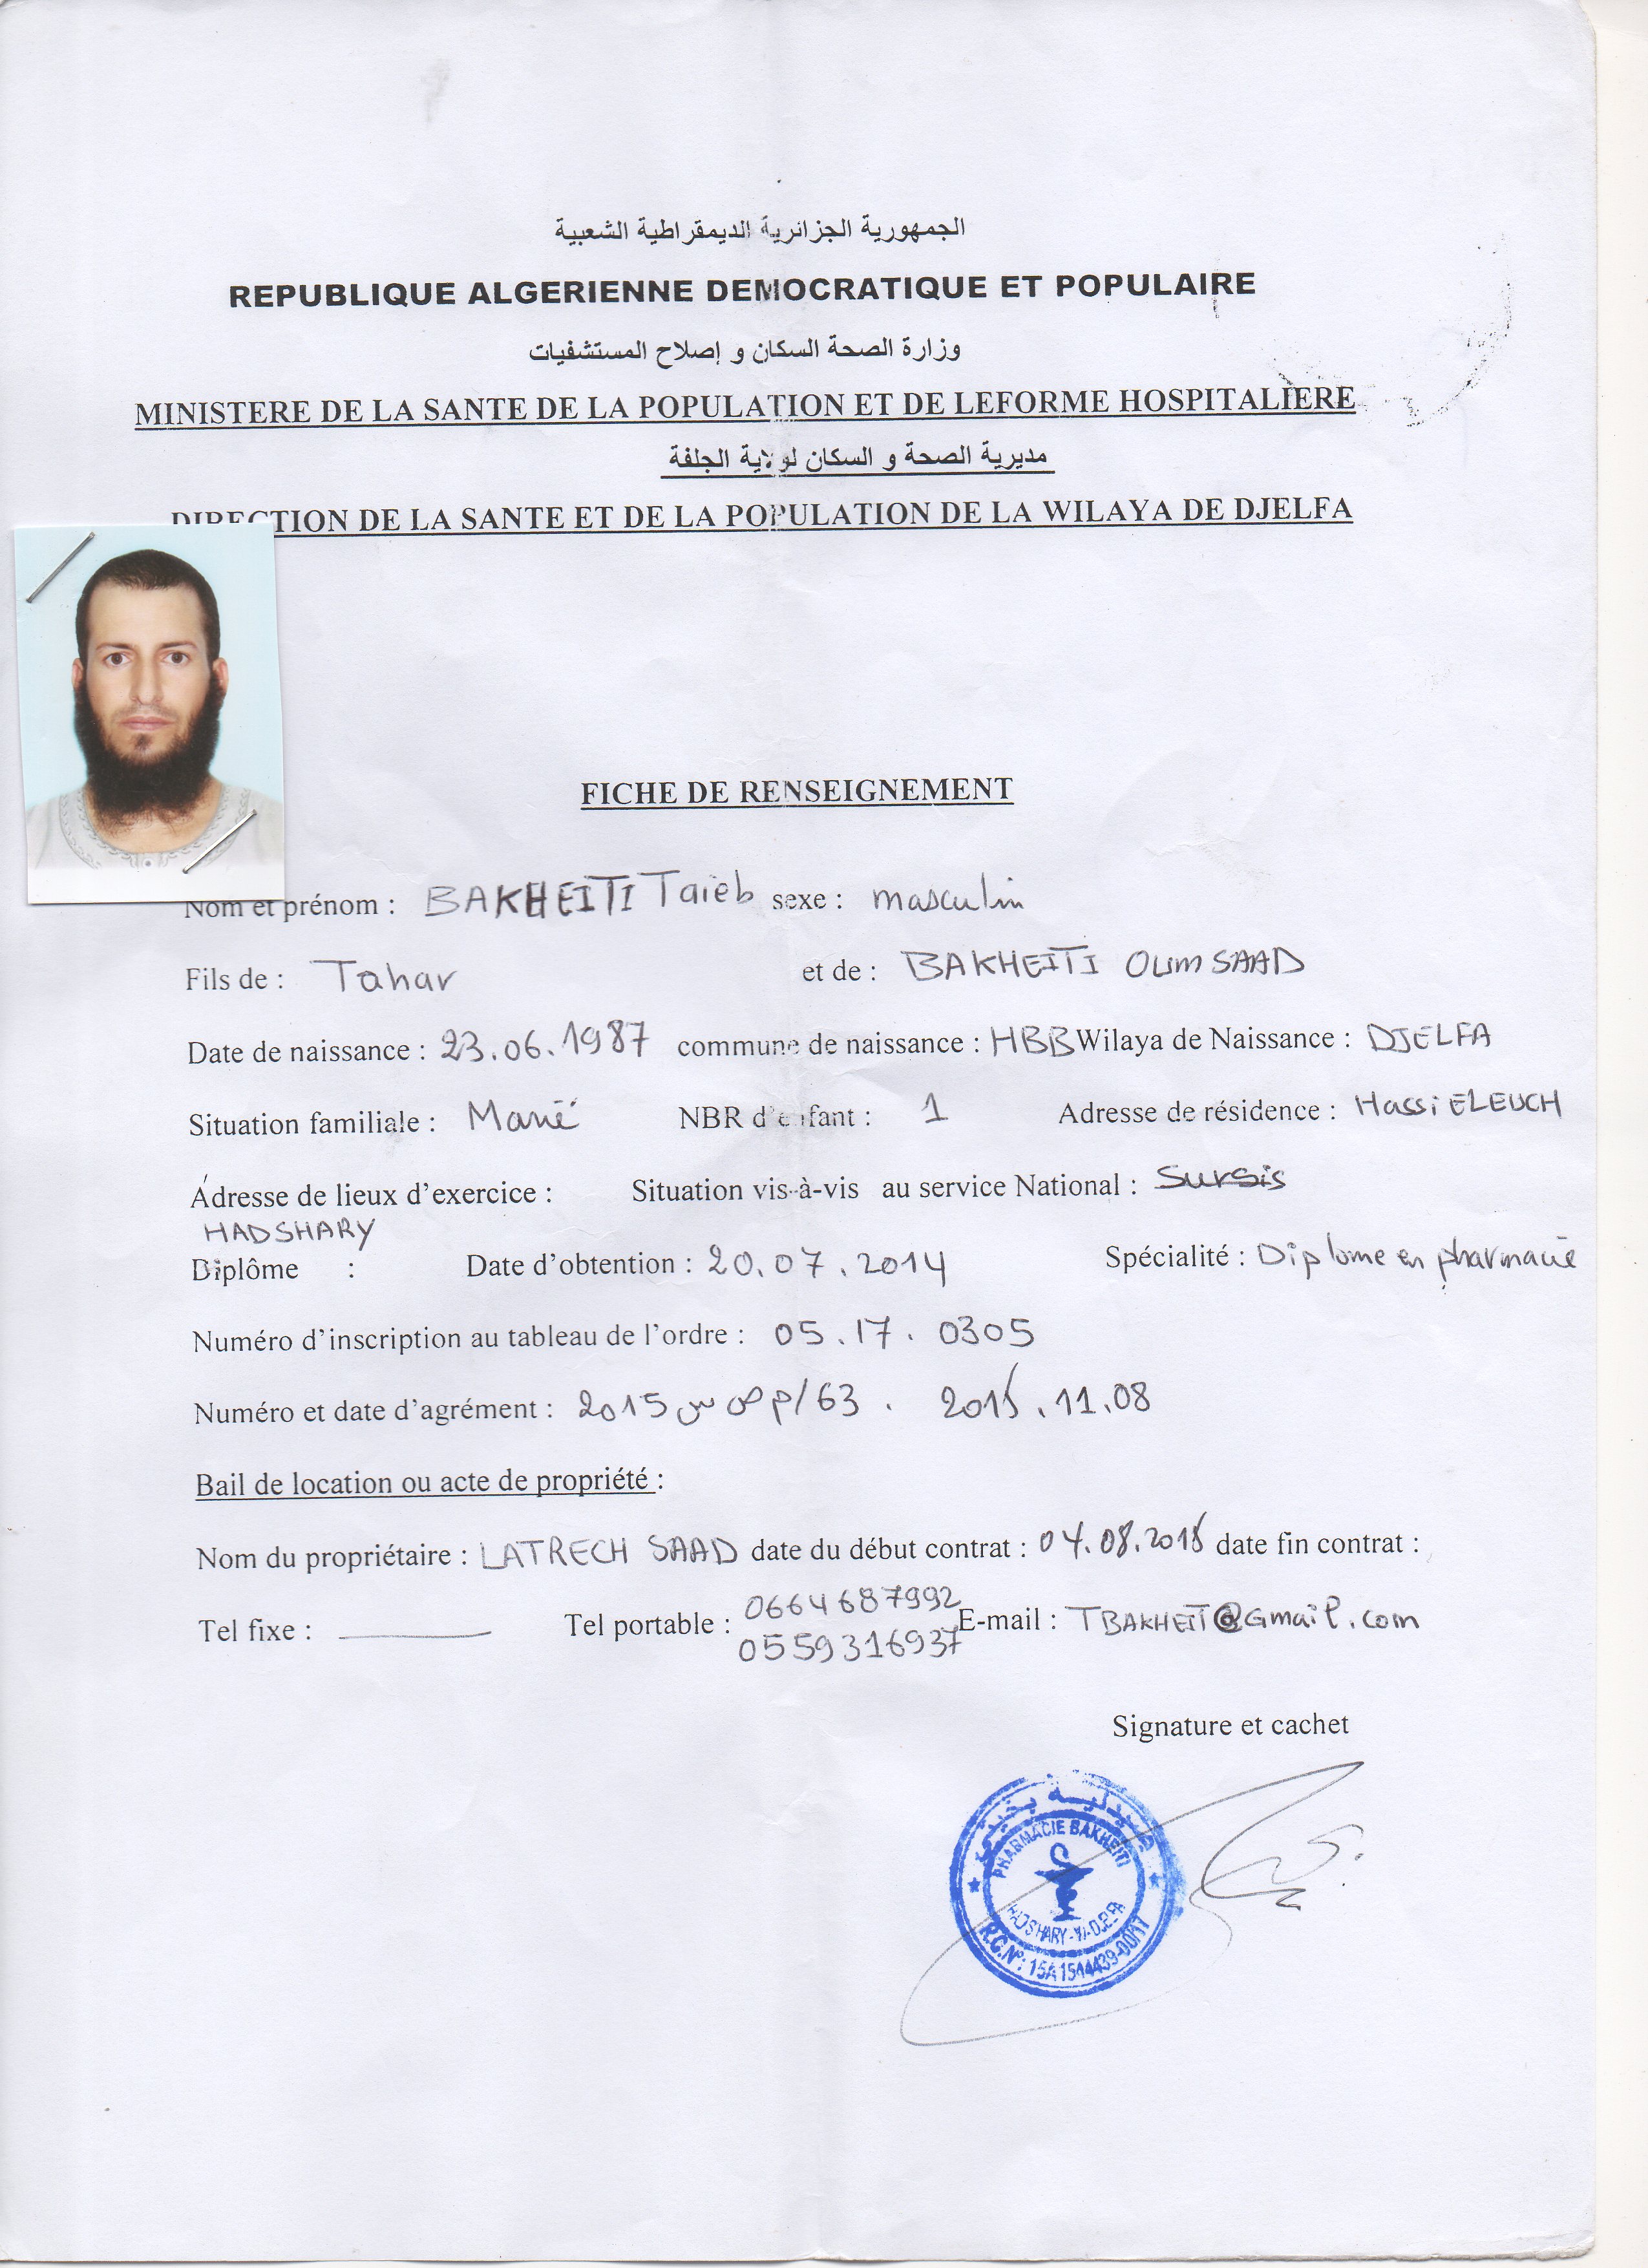 الجمهورية الجزائرية الديمقراطية الشعبية
REPUBLIQUE ALGERIENNE DEMOCRATIQUE ET POPULAIRE
وزارة الصحة السكان و إصلاح المستشفيات
MINISTERE DE LA SANTE DE LA POPULATION ET DE LEFORME HOSPITALIERE
مديرية الصحة و السكان لولاية الجلفة
DIRECTION DE LA SANTE ET DE LA POPULATION DE LA WILAYA DE DJELFA
FICHE DE RENSEIGNEMENT
Nom et prénom : BAKHEITI Taieb sexe : masculin
Fils de : Tahar et de : BAKHEITI OUM SAAD
Date de naissance : 23.06.1987 commune de naissance : HBB Wilaya de Naissance : DJELFA
Situation familiale : Marié NBR d'enfant : 1 Adresse de résidence : Hassi ELEUCH
Adresse de lieux d'exercice : Situation vis-à-vis au service National : Sursis
HADSHARY
Diplôme : Date d'obtention : 20.07.2014 Spécialité : Diplome en pharmacie
Numéro d'inscription au tableau de l'ordre : 05.17.0305
Numéro et date d'agrément : 2015 م ص س/63 . 2015.11.08
Bail de location ou acte de propriété :
Nom du propriétaire : LATRECH SAAD date du début contrat : 04.08.2015 date fin contrat :
Tel fixe : Tel portable : 0664687992 E-mail : TBAKHEIT@Gmail.com
0559316937
Signature et cachet
صيدلية بخيتي
PHARMACIE BAKHEITI
HAD SHARY-W-DJELFA
R.C.N°: 15A1514439-00/17